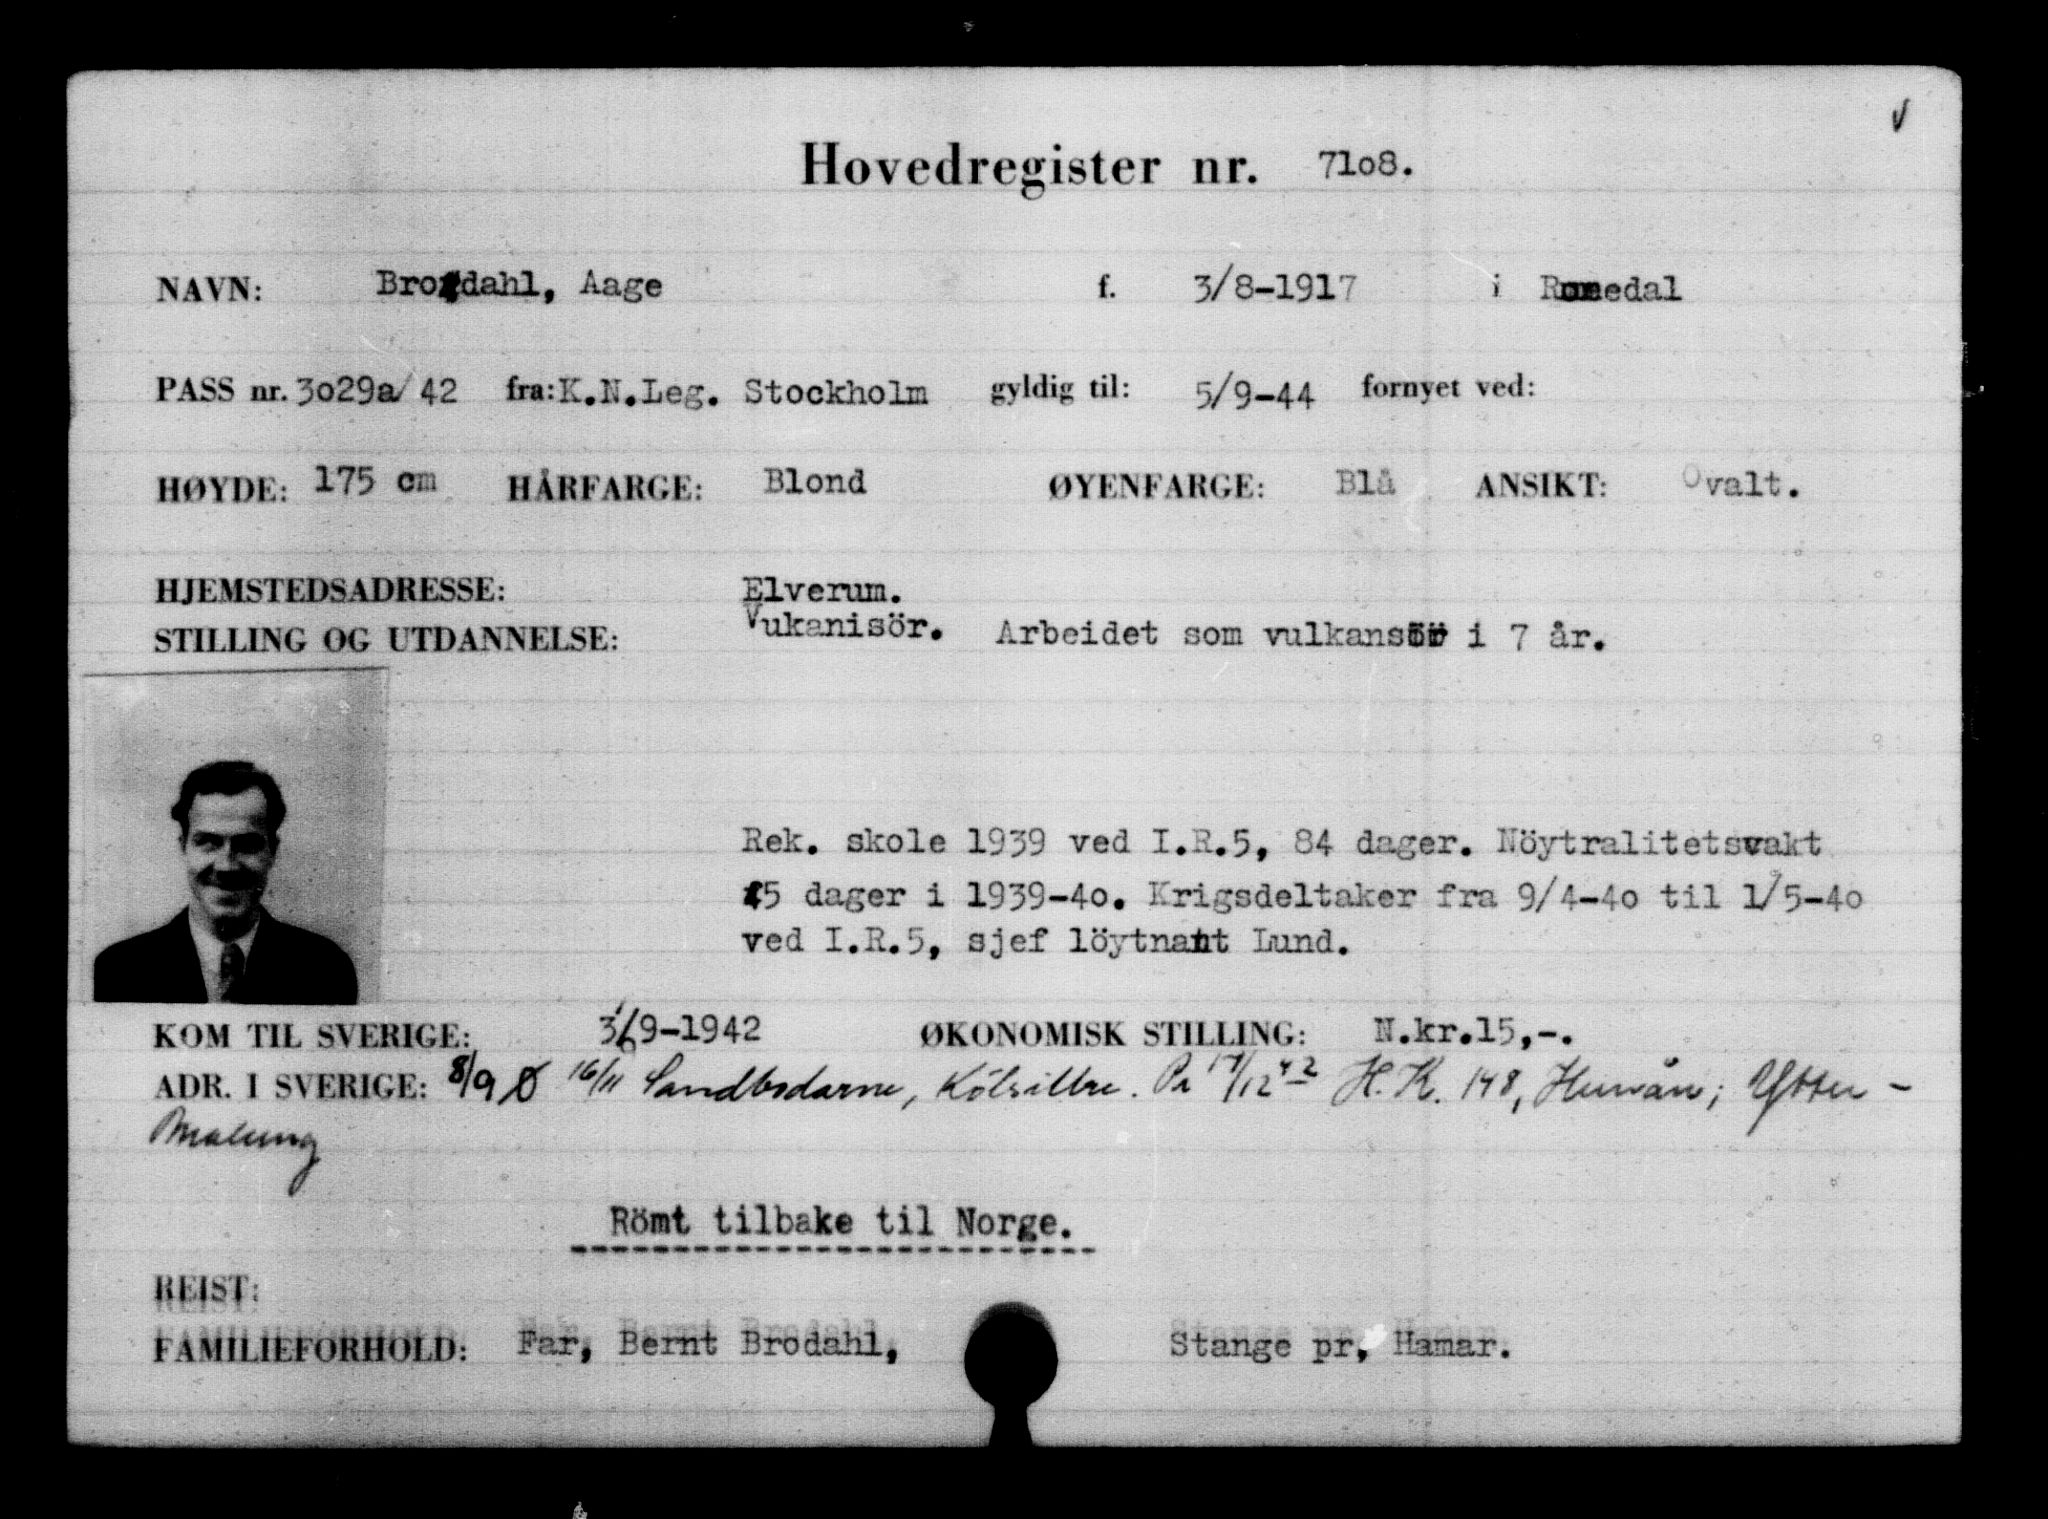 Hovedregister nr. 7108.
NAVN: Brodahl, Aage f. 3/8-1917 i Romedal
PASS nr. 3029a/42 fra: K.N.Leg. Stockholm gyldig til: 5/9-44 fornyet ved:
HØYDE: 175 cm HÅRFARGE: Blond ØYENFARGE: Blå ANSIKT: Ovalt.
HJEMSTEDSADRESSE: Elverum.
STILLING OG UTDANNELSE: Vukanisör. Arbeidet som vulkansör i 7 år.
Rek. skole 1939 ved I.R.5, 84 dager. Nöytralitetsvakt
5 dager i 1939-40. Krigsdeltaker fra 9/4-40 til 1/5-40
ved I.R.5, sjef löytnant Lund.
KOM TIL SVERIGE: 3/9-1942 ØKONOMISK STILLING: N.kr.15,-.
ADR. I SVERIGE: 8/9 Ø 16/11 Sandbodarne, Kölsillre. 17/12 42 H.K. 148, Ytter-
Malung
Römt tilbake til Norge.
REIST:
FAMILIEFORHOLD: Far, Bernt Brodahl, Stange pr, Hamar.